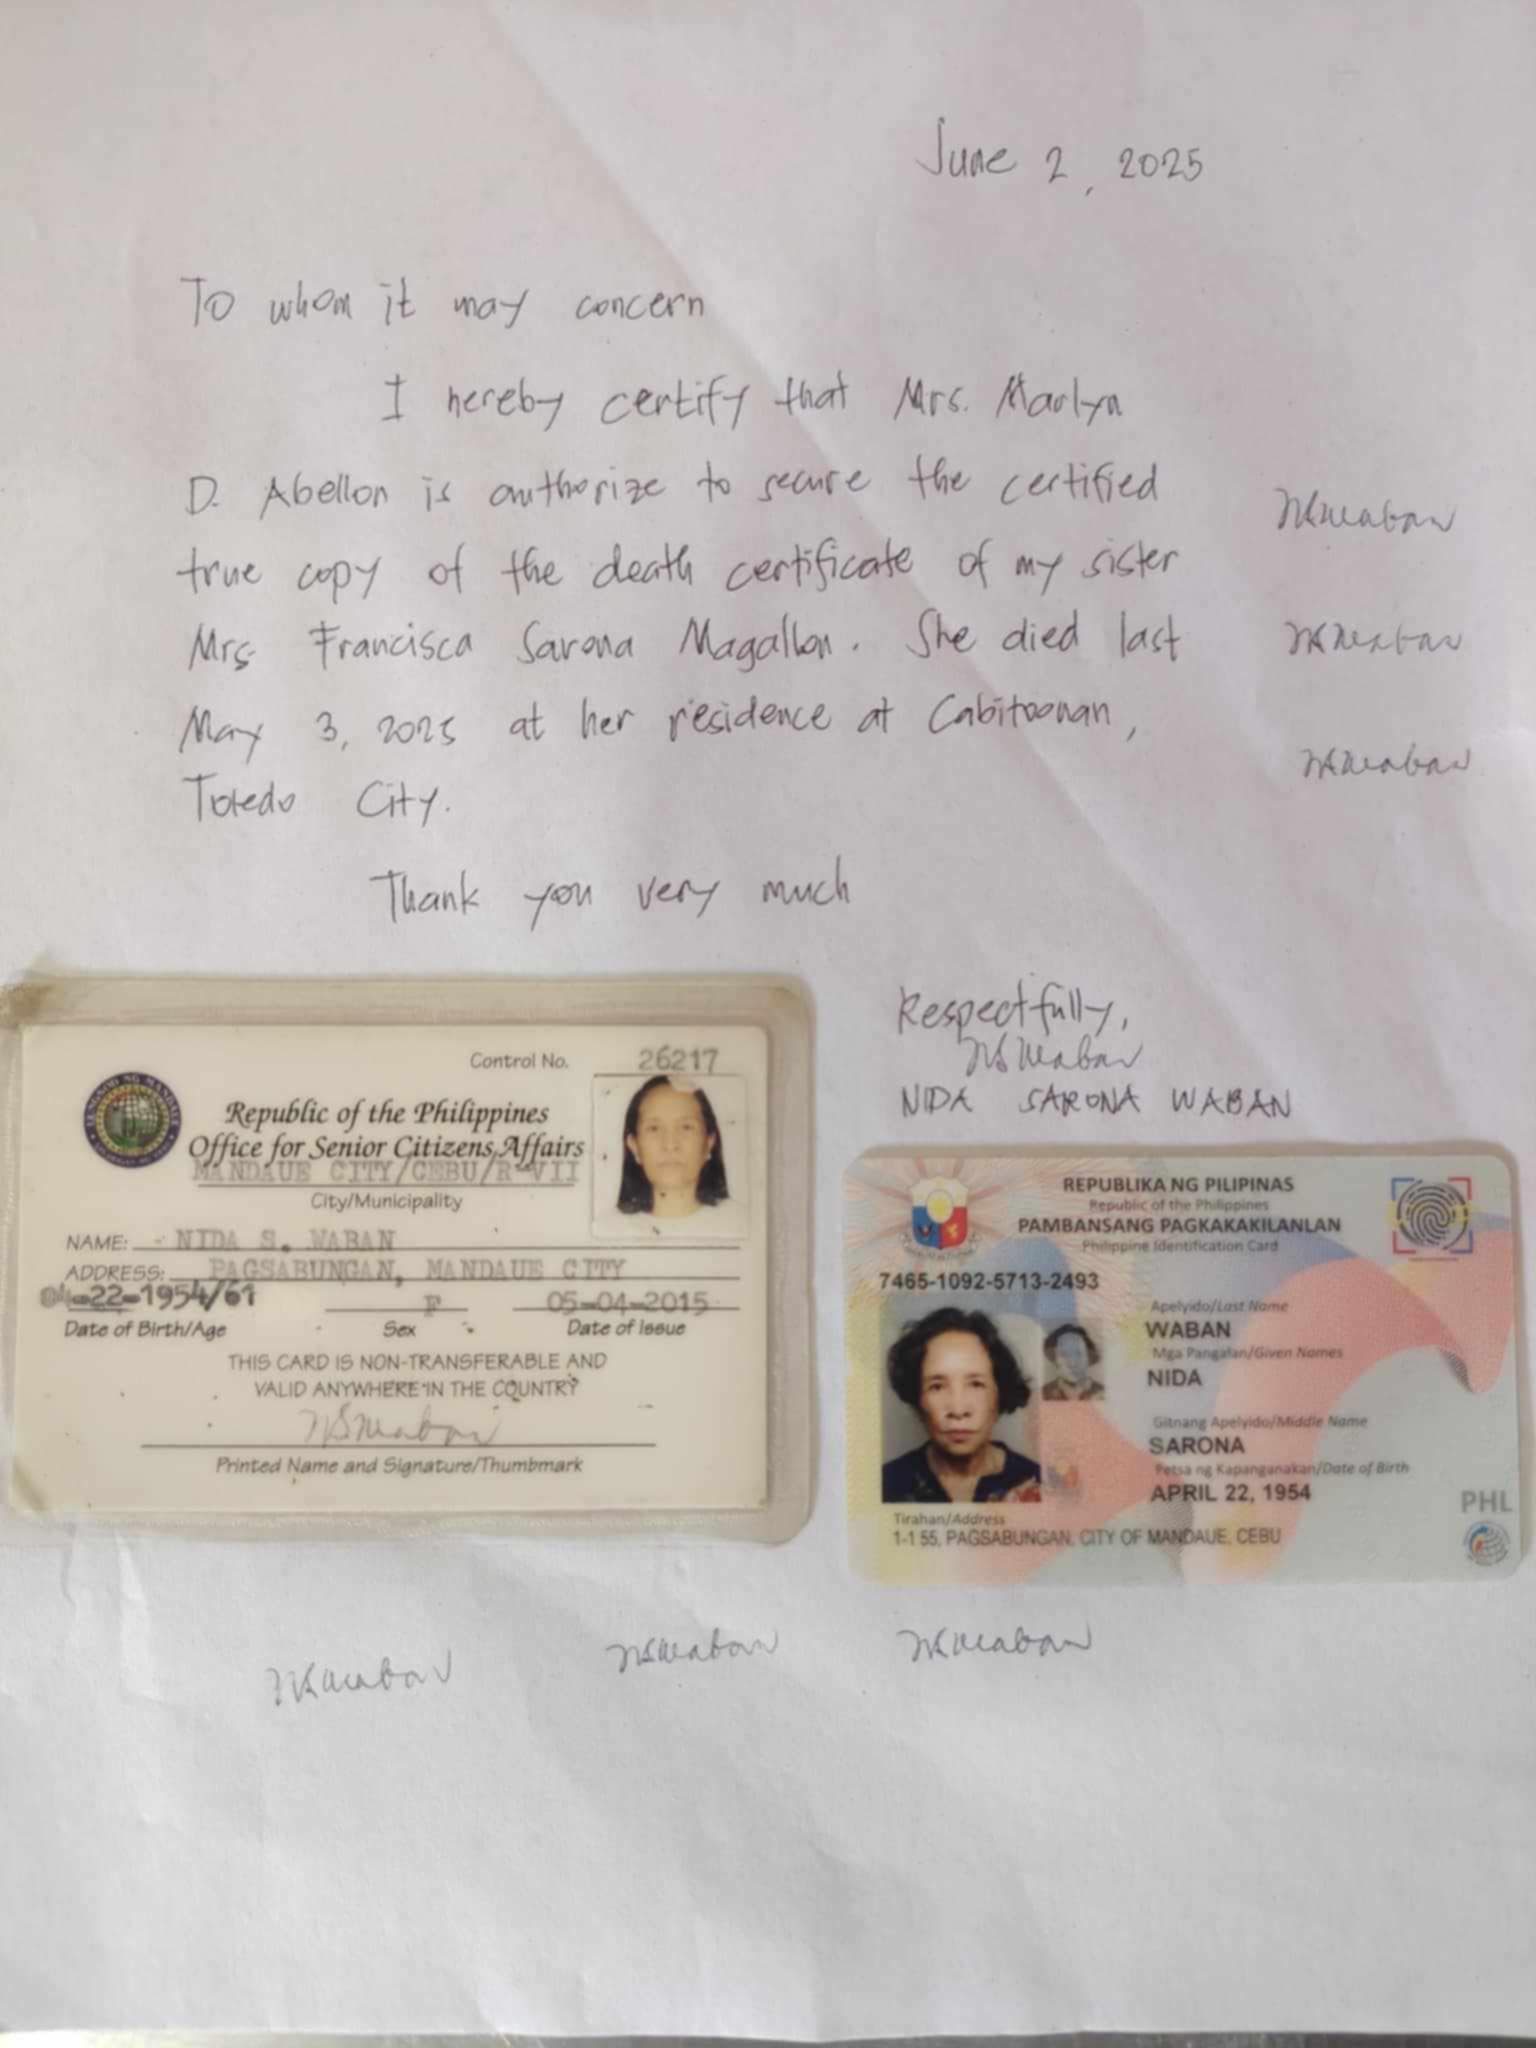 June 2, 2025
To whom it may concern
I hereby certify that Mrs. Marlyn
D. Abellon is authorize to secure the certified
true copy of the death certificate of my sister
Mrs. Francisca Sarona Magallon. She died last
May 3, 2025 at her residence at Cabitoonan,
Toledo City.
Thank you very much
Respectfully,
NSWaban
NIDA SARONA WABAN
NSWaban
NSWaban
NSWaban
Control No. 26217
LUNGSOD NG MANDAUE
Republic of the Philippines
Office for Senior Citizens Affairs
MANDAUE CITY/CEBU/R-VII
City/Municipality
NAME: NIDA S. WABAN
ADDRESS: PAGSABUNGAN, MANDAUE CITY
04-22-1954/61 F 05-04-2015
Date of Birth/Age Sex Date of Issue
THIS CARD IS NON-TRANSFERABLE AND
VALID ANYWHERE IN THE COUNTRY
NSWaban
Printed Name and Signature/Thumbmark
REPUBLIKA NG PILIPINAS
Republic of the Philippines
PAMBANSANG PAGKAKAKILANLAN
Philippine Identification Card
7465-1092-5713-2493
Apelyido/Last Name
WABAN
Mga Pangalan/Given Names
NIDA
Gitnang Apelyido/Middle Name
SARONA
Petsa ng Kapanganakan/Date of Birth
APRIL 22, 1954
PHL
Tirahan/Address
1-1 55, PAGSABUNGAN, CITY OF MANDAUE, CEBU
NSWaban
NSWaban
NSWaban